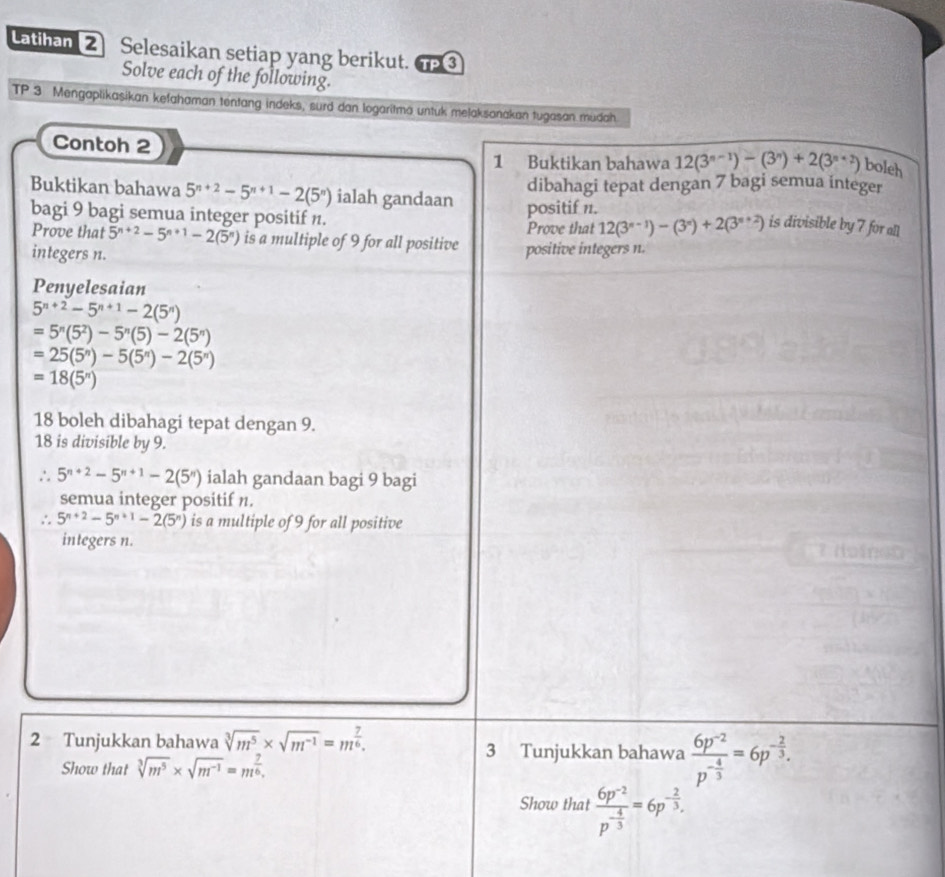 Latihan 2 Selesaikan setiap yang berikut. TP 3
Solve each of the following.
TP 3 Mengaplikasikan kefahaman tentang indeks, surd dan logaritma untuk melaksanakan tugasan mudah.
Contoh 2
Buktikan bahawa 5ⁿ⁺² – 5ⁿ⁺¹ – 2(5ⁿ) ialah gandaan
bagi 9 bagi semua integer positif n.
Prove that 5ⁿ⁺² – 5ⁿ⁺¹ – 2(5ⁿ) is a multiple of 9 for all positive
integers n.
Penyelesaian
5ⁿ⁺² – 5ⁿ⁺¹ – 2(5ⁿ)
= 5ⁿ(5²) – 5ⁿ(5) – 2(5ⁿ)
= 25(5ⁿ) – 5(5ⁿ) – 2(5ⁿ)
= 18(5ⁿ)
18 boleh dibahagi tepat dengan 9.
18 is divisible by 9.
∴ 5ⁿ⁺² – 5ⁿ⁺¹ – 2(5ⁿ) ialah gandaan bagi 9 bagi
semua integer positif n.
∴ 5ⁿ⁺² – 5ⁿ⁺¹ – 2(5ⁿ) is a multiple of 9 for all positive
integers n.
1 Buktikan bahawa 12(3ⁿ⁻¹) – (3ⁿ) + 2(3ⁿ⁺²) boleh
dibahagi tepat dengan 7 bagi semua integer
positif n.
Prove that 12(3ⁿ⁻¹) – (3ⁿ) + 2(3ⁿ⁺²) is divisible by 7 for all
positive integers n.
2 Tunjukkan bahawa ∛m⁵ × √m⁻¹ = m^(7/6).
Show that ∛m⁵ × √m⁻¹ = m^(7/6).
3 Tunjukkan bahawa 6p⁻²/p^(-4/3) = 6p^(-2/3).
Show that 6p⁻²/p^(-4/3) = 6p^(-2/3).